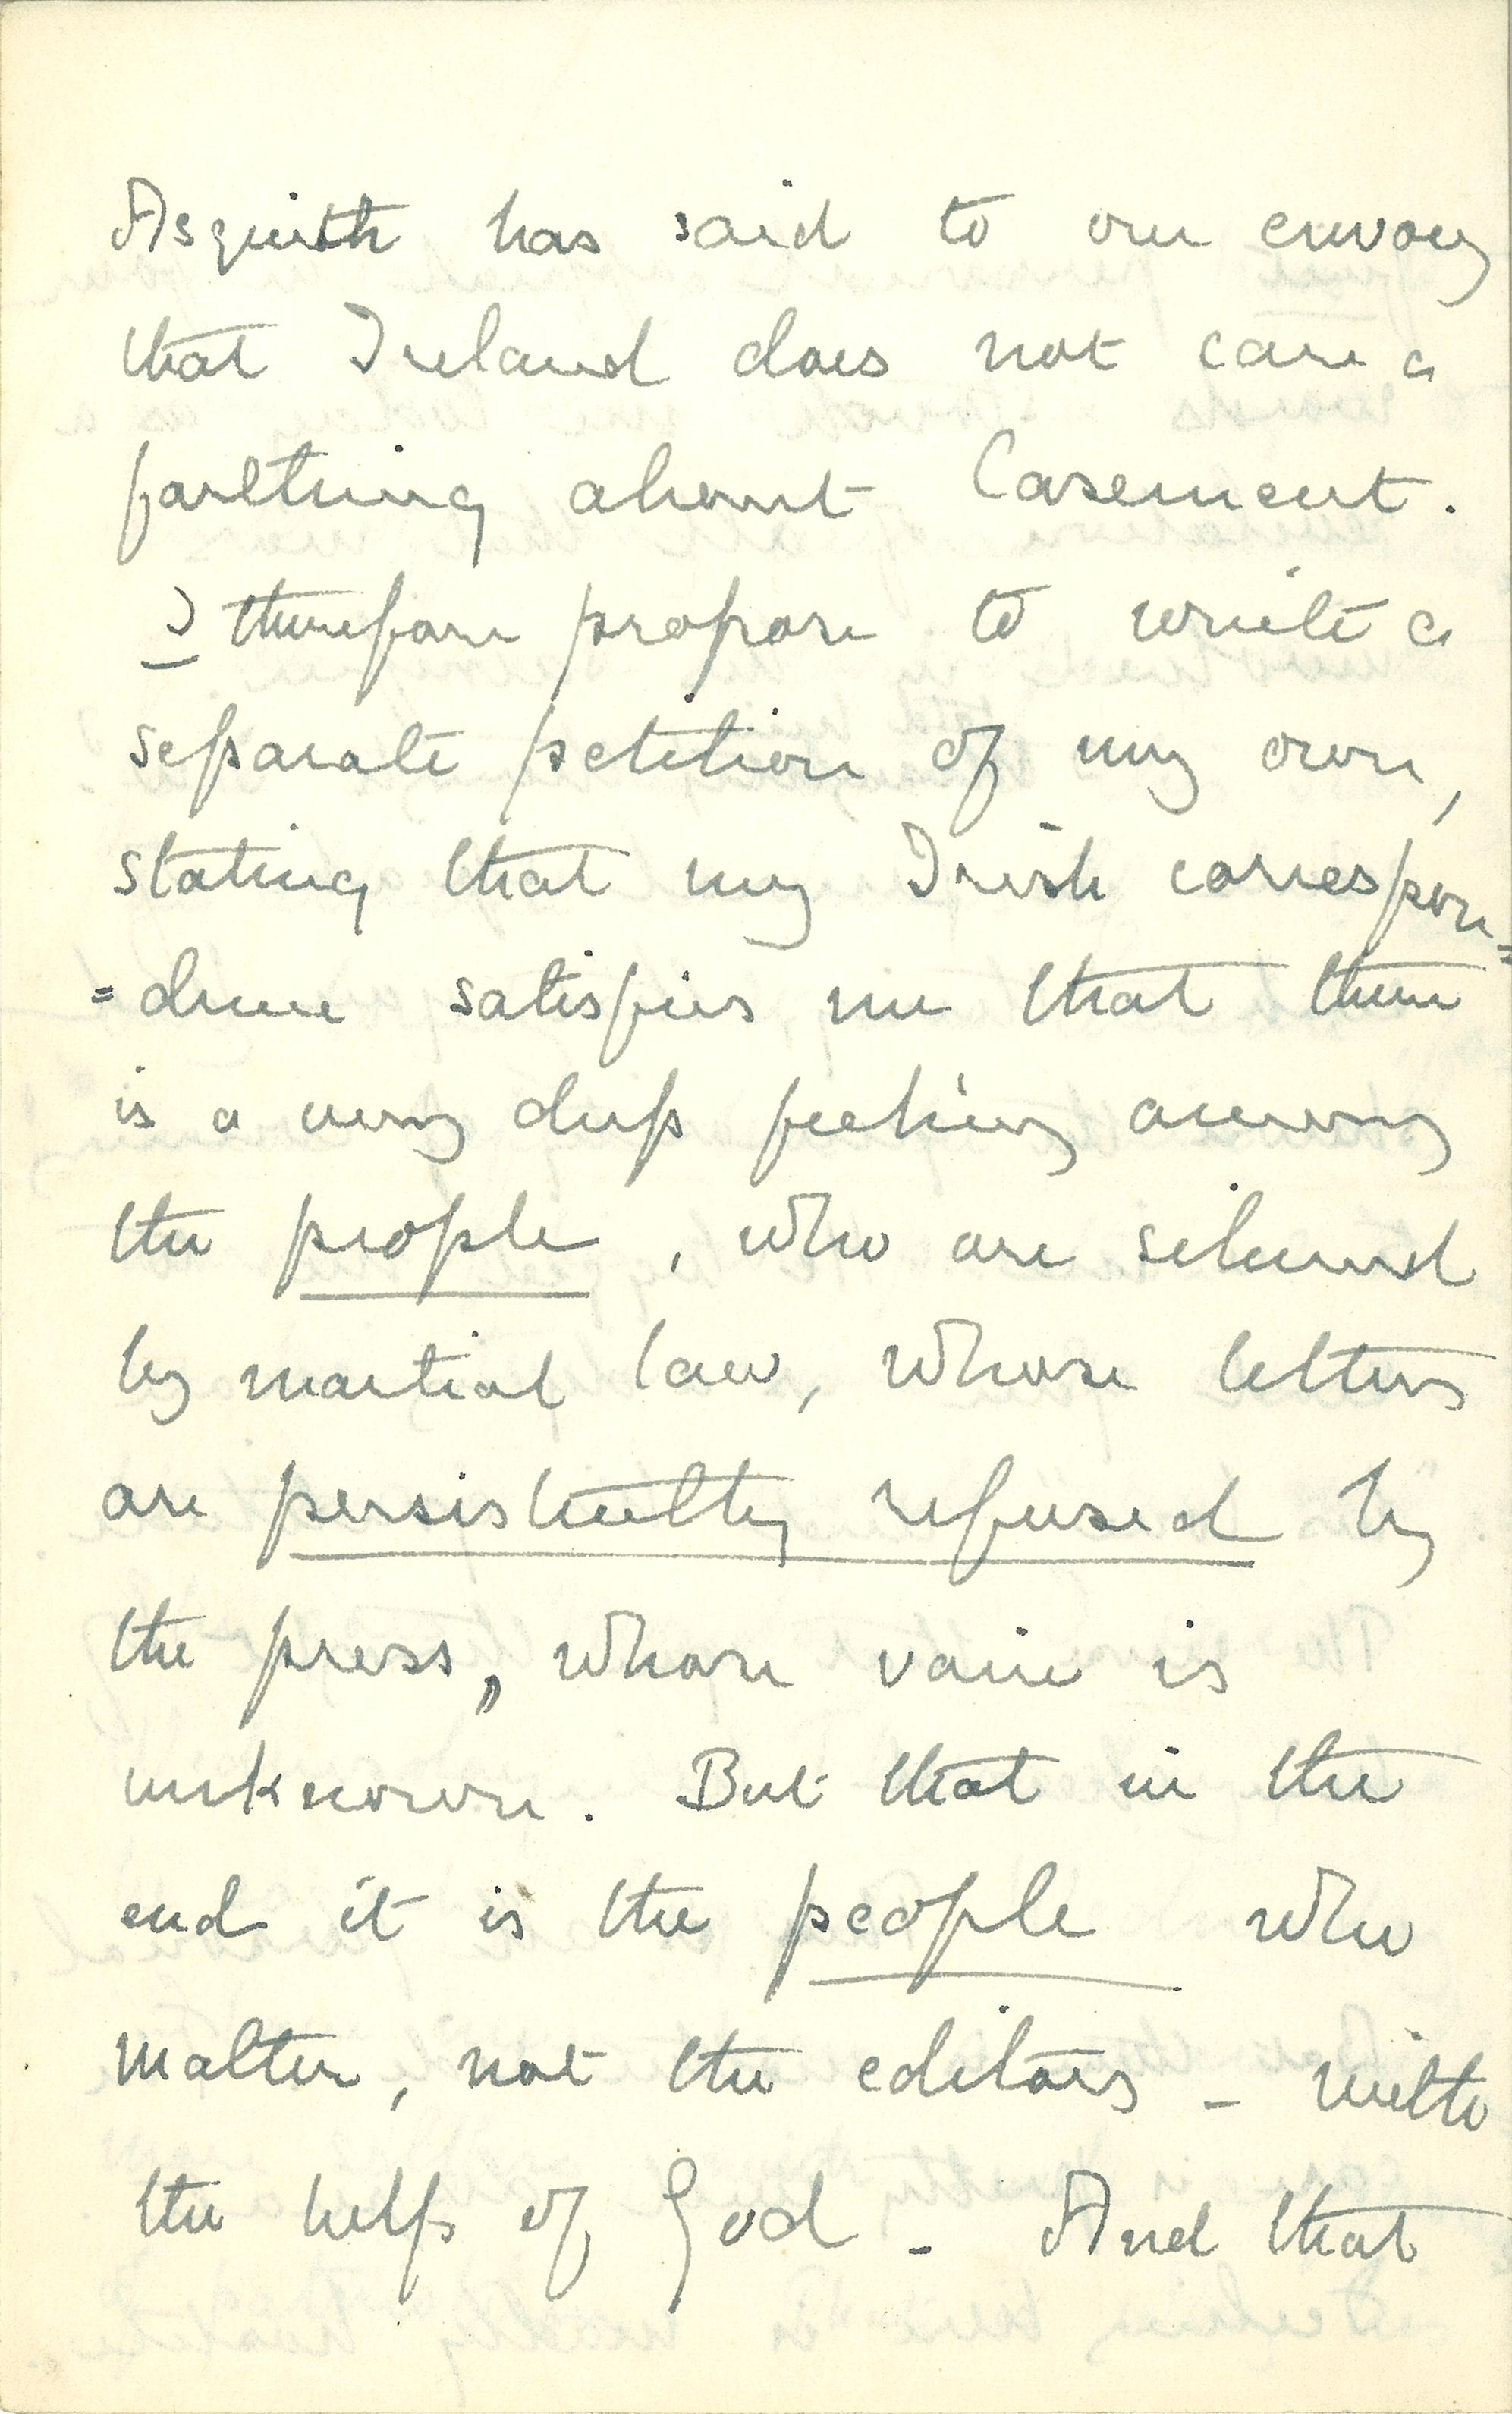 Asquith has said to our envoy
that Ireland does not care a
farthing about Casement.
I therefore propose to write a
separate petition of my own,
stating that my Irish correspon=
=dence satisfies me that there
is a very deep feeling among
the people, who are silenced
by martial law, whose letters
are persistently refused by
the press, whose voice is
unknown. But that in the
end it is the people who
matter, not the editors - with
the help of God - And that